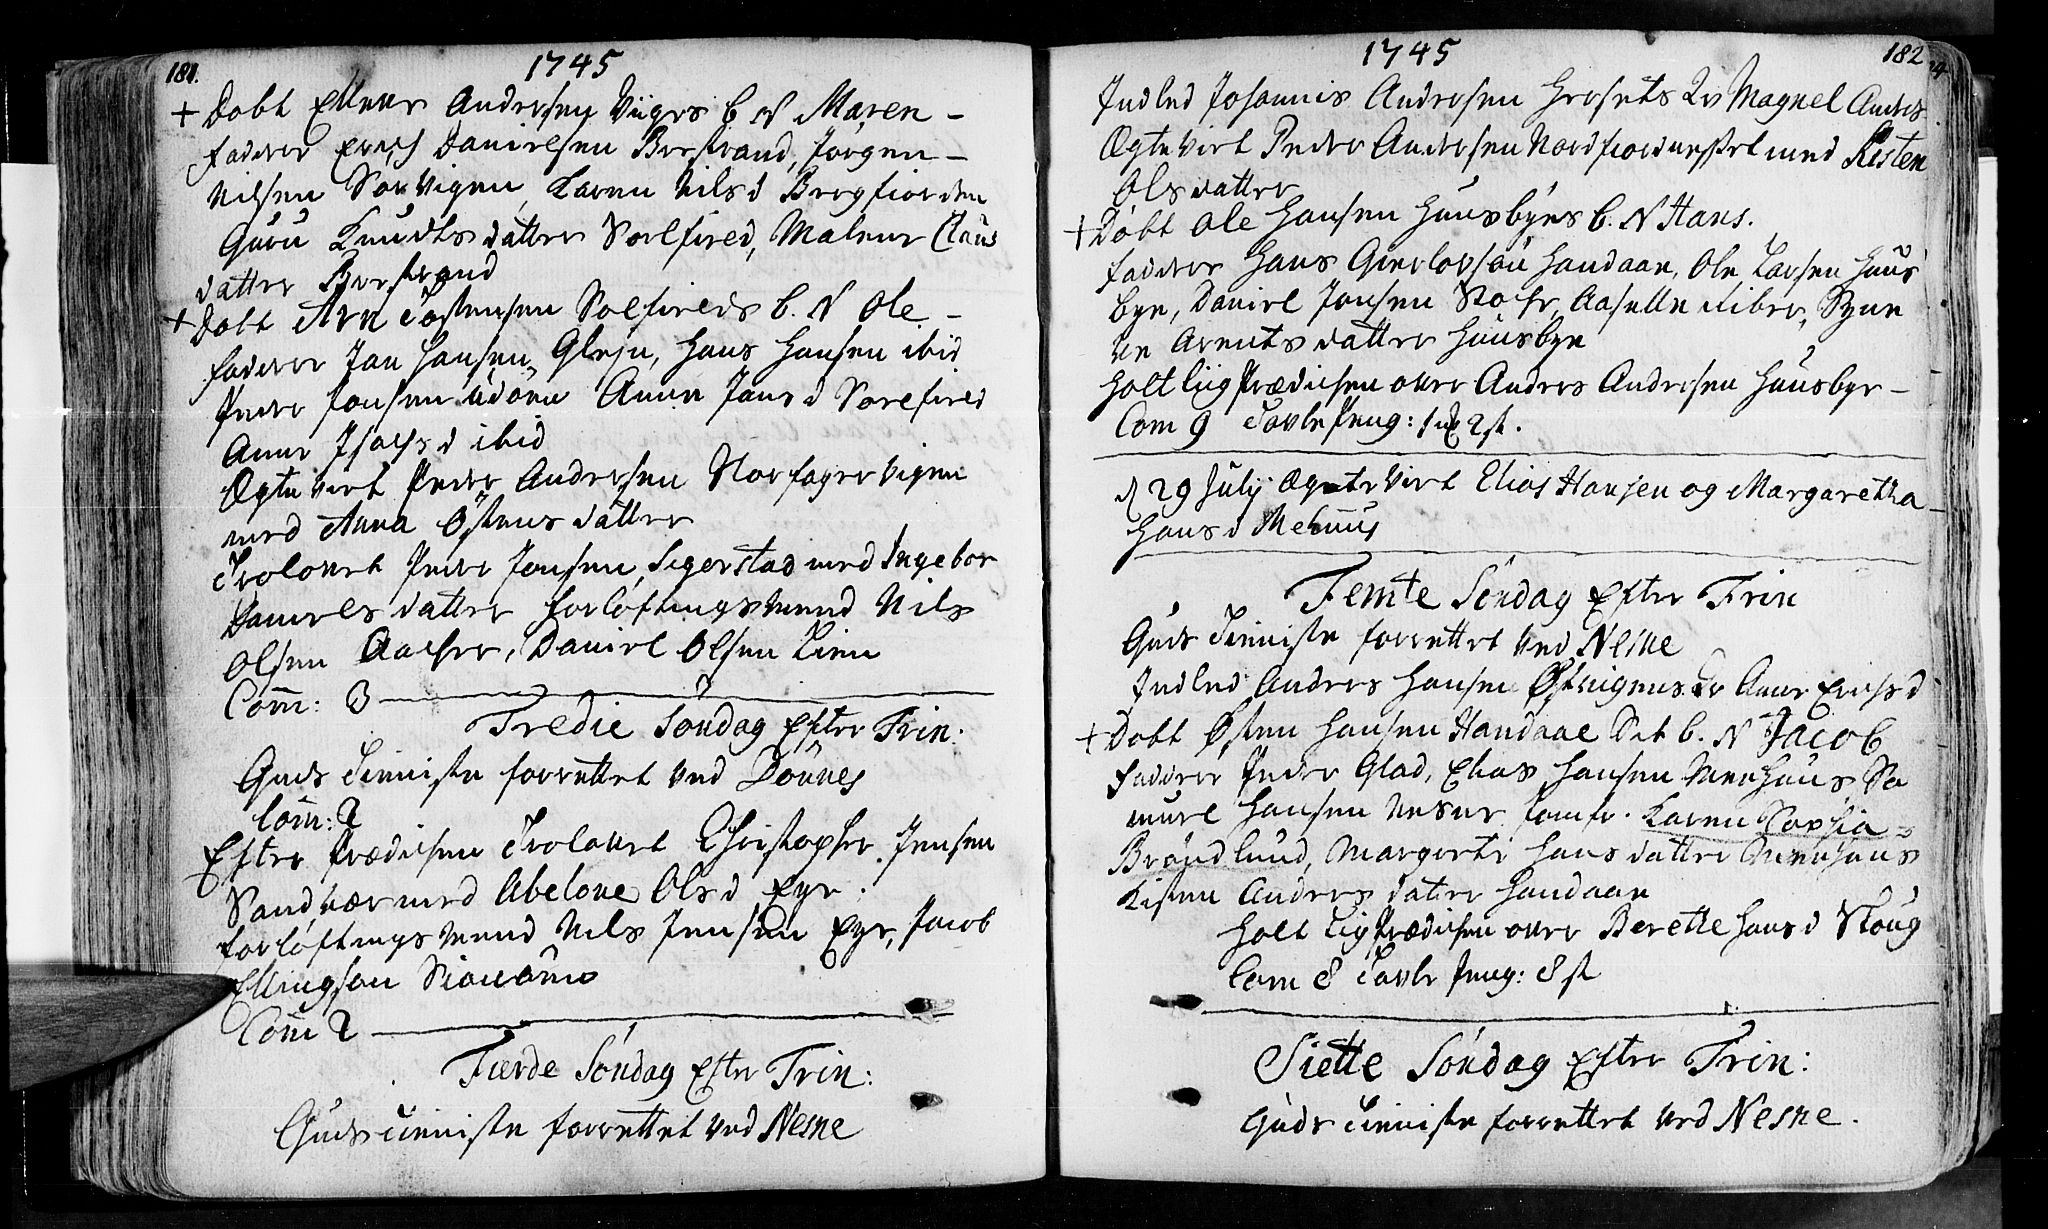 181.
1745
+ Døbt Andersen Viigs b. N Maren –
Faddere Erich Danielsen Berstrand, Jørgen –
Nilsen Sørvigen, Karen Nils d Bergfiorden
Guru Knudts datter Solfired, Malene Claus
datter Berstrand
+ Døbt Arn Tostensen Solfireds b. N Ole –
Faddere Jan Hansen Glesn, Hans Hansen ibid
Peder Jonsen Anne Jans d Sorefired
Anne Isachs d ibid
Ægte Viet Peder Andersen Norfagervigen
med Anna Østens datter
Trolovet Peder Jonsen Segerstad med Ingebor
Daniels datter forløftings mend Nils
Olsen Aaker, Daniel Olsen Lien
Com: 3
Tredie Søndag Efter Trin:
Guds Tieniste forrettet ved Dønnes
Com: 2
Efter Prædiken Trolovet Christopher Jensen
Sandvær med Abelone Ols d Eye.
forløftings mend Nils Jensen Eye, Jacob
Ellingsen
Com 2
Fierde Søndag Efter Trin:
Guds tieniste forrettet ved Nesne
1745
182
Indled Johannis Andersen Grosets Q: Magnel Anders
Ægte Viet Peder Andersen Nordfiordneset med Kisten
Ols datter
+ Døbt Ole Hansen Huusbyes b. N Hans.
Faddere Hans Gierlovsøn Handaan, Ole Larsen Huus
bye, Daniel Jonsen Aaselle Synne
ve Arents datter Huusbye
Holt Liig Prædiken over Anders Andersen Huusbye –
Com 9 Tavle Peng: 1 2 s.
d 29 Julij Ægte Viet Elias Hansen og Margaretha
Hans d
Femte Søndag Efter Trin
Guds Tieniste forrettet ved Nesne
Indled Anders Hansen Østvigens Q: Anne Erichs d
+ Døbt Østen Hansen Handaae b. N Jacob
Faddere Peder Glad, Elias Hansen Meehuus Sa
muel Hansen Jomfr. Karen Sophia
Brøndlund, Margrete Hans datter
Kisten Anders datter Handaan
Holt Liig Prædiken over Berette Hans d Skoug
Com 8 Tavle Peng: 8 s
Siette Søndag Efter Trin:
Guds tieniste forrettet ved Nesne.